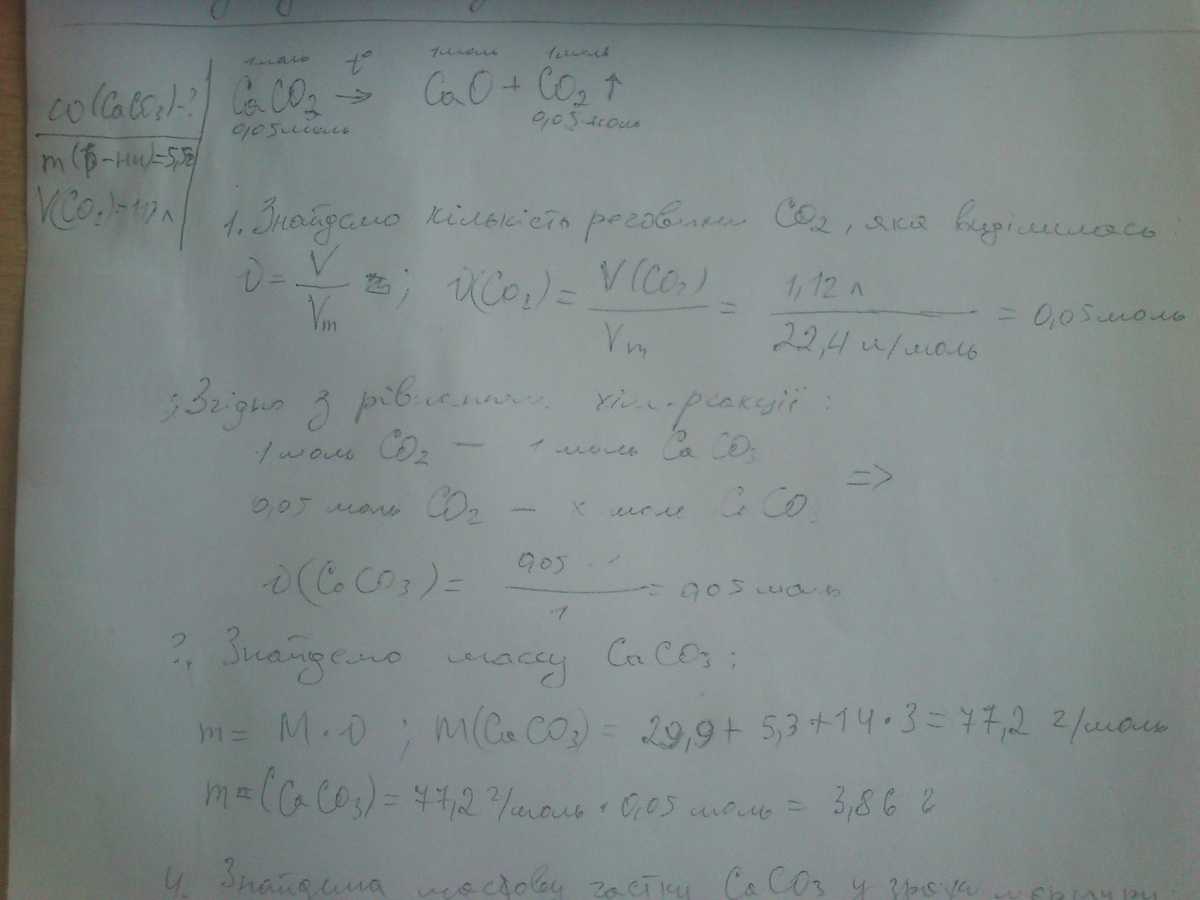 1 моль t° 1 моль 1 моль
CaCO₂ → CaO + CO₂ ↑
0,05 моль 0,05 моль
ω(CaCO₃)-?
m(р-ни)=5,5г
V(CO₂)=1,12 л
1. Знайдемо кількість речовини CO₂, яка виділилась
ν = V/Vm ; ν(CO₂) = V(CO₂)/Vm = 1,12 л/22,4 л/моль = 0,05 моль
Згідно з рівнянням хім. реакції :
1 моль CO₂ — 1 моль CaCO₃
=>
0,05 моль CO₂ — x моль CaCO₃
ν(CaCO₃) = 0,05 · 1/1 = 0,05 моль
Знайдемо массу CaCO₃ ;
m = M · ν ; M(CaCO₃) = 29,9 + 5,3 + 14 · 3 = 77,2 г/моль
m = (CaCO₃) = 77,2 г/моль · 0,05 моль = 3,86 г
4. Знайдема масову частку CaCO₃ у